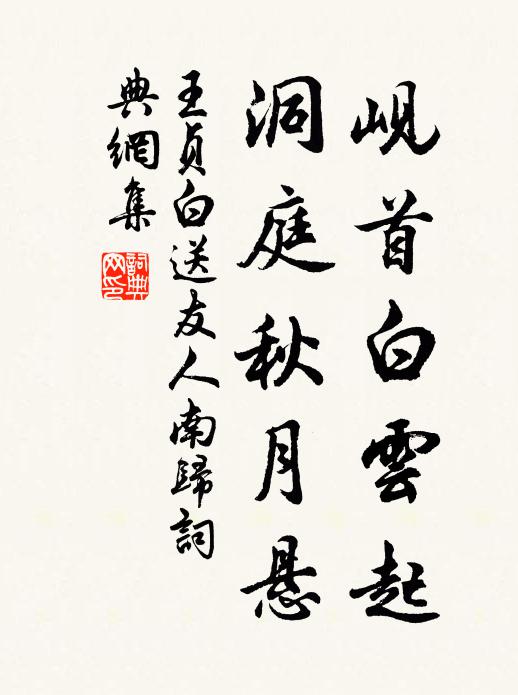 岘首白雲起
洞庭秋月悬
王贞白送友人南歸詞
典網集
詞典网印